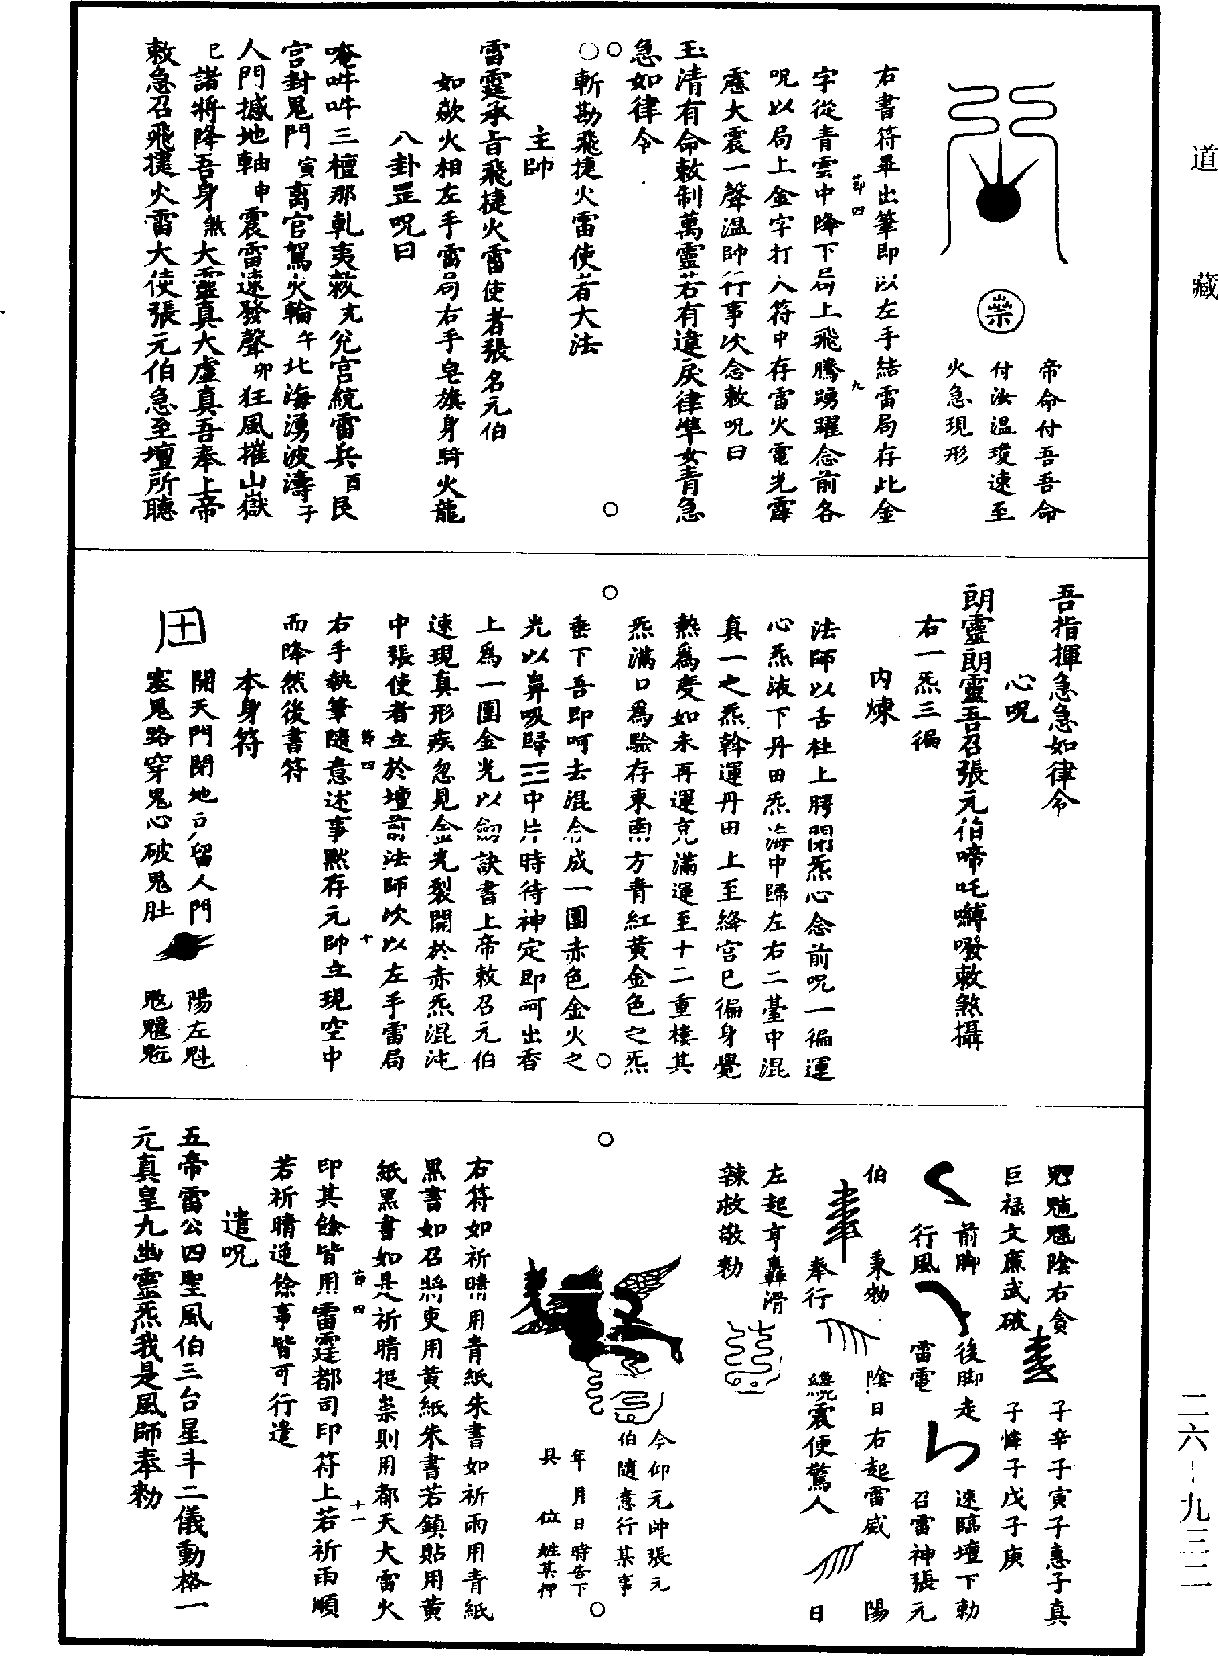 道藏
帝命付吾吾命
付法溫瓊速至
火急現形
右書符畢出筆即以左手結雷局存此金
字從青雲中降下局上飛騰踴躍念前各
呪以局上金字打入符中存雷火電光霹
靂大震一聲溫帥行事次念敕呪曰
玉清有命敕制萬靈若有違戾律準女青急
急如律令
○斬勘飛捷火雷使者大法
主帥
雷霆承旨飛捷火雷使者張名元伯
如欻火相左手雷局右手皂旗身騎火龍
八卦罡呪曰
唵吽吽三檀那軋夷 兌宮統雷兵酉艮
宮封鬼門寅离宮駕火輪午北海湧波濤子
人門撼地軸申震雷速發聲卯狂風摧山嶽
巳諸將降吾身煞大靈真大虛真吾奉上帝
敕急召飛捷火雷大使張元伯急至壇所聽
吾指揮急急如律令
心呪
朗靈朗靈吾召張元伯啼吒囀㗶敕煞攝
右一炁三徧
內煉
法師以舌柱上腭閉炁心念前呪一徧運
心炁液下丹田炁海中歸左右二臺中混
真一之炁斡運丹田上至絳宮已徧身覺
熱爲度如未再運充滿運至十二重樓其
炁滿口爲驗存東南方青紅黃金色之炁
垂下吾即呵去混合成一團赤色金火之
光以鼻吸歸三中片時待神定即呵出香
上爲一團金光以劒訣書上帝敕召元伯
速現真形疾忽見金光裂開於赤炁混沌
中張使者立於壇前法師次以左手雷局
右手執筆隨意述事默存元帥立現空中
而降然後書符
本身符
開天門閉地戶留人門
塞鬼路穿鬼心破鬼肚
陽左魁
䰢䰡魓
陰右貪
巨祿文廉武破
子辛子寅子惠子真
子懞子戊子庚
前脚
行風
後脚走
雷電
速臨壇下勅
召雷神張元
伯
秉勑
奉行
陰日右起雷威
繞震便驚人
陽
日
左起亨轟滑
辣救敬勑
今仰元帥張元
伯隨意行某事
年月日時告下
具 位 姓某押
右符如祈晴用青紙朱書如祈雨用青紙
黑書如召將吏用黃紙朱書若鎮貼用黃
紙黑書如是祈晴捉祟則用都天大雷火
印其餘皆用雷霆都司印符上若祈雨順
若祈晴逆餘事皆可行遣
遣呪
五帝雷公四聖風伯三台星斗二儀動格一
元真皇九幽靈炁我是風師奉勑
二六-九三二